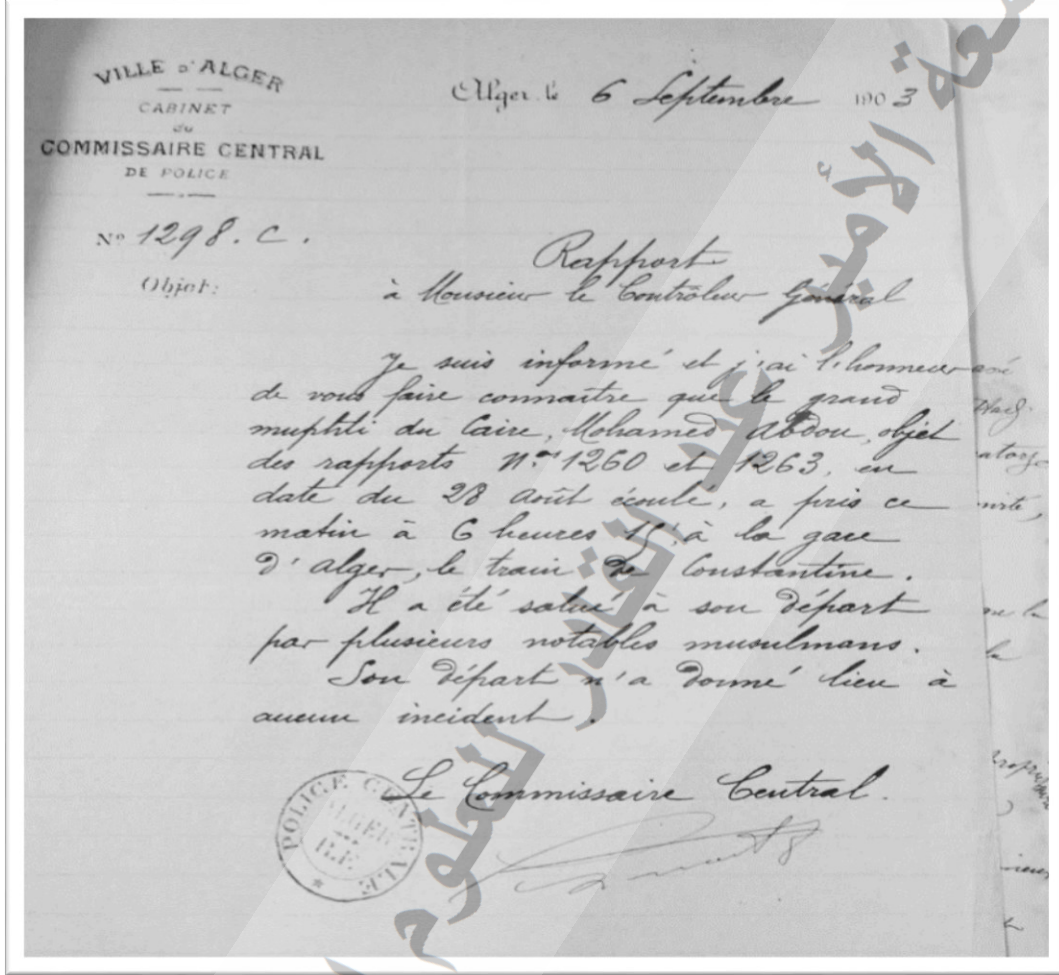 VILLE D'ALGER
CABINET
du
COMMISSAIRE CENTRAL
DE POLICE
Alger, le 6 Septembre 1903
N° 1298. C.
Objet:
Rapport
à Monsieur le Contrôleur Général
Je suis informé et j'ai l'honneur
de vous faire connaître que le grand
muphti du Caire, Mohamed Abdou, objet
des rapports Nos 1260 et 1263, en
date du 28 Août écoulé, a pris ce
matin à 6 heures 15, à la gare
d'Alger, le train de Constantine.
Il a été salué à son départ
par plusieurs notables musulmans.
Son départ n'a donné lieu à
aucun incident.
Le Commissaire Central.
POLICE CENTRALE
ALGER
جامعة الأمير عبد القادر للعلوم